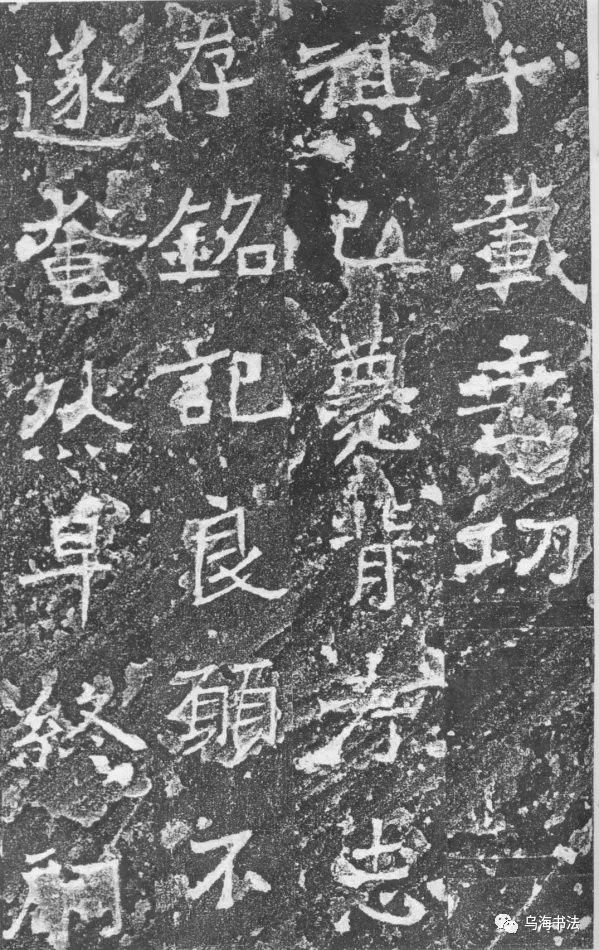 千載切
祖已薨背考志
存銘記良願不
遂奄然早終嗣
乌海书法